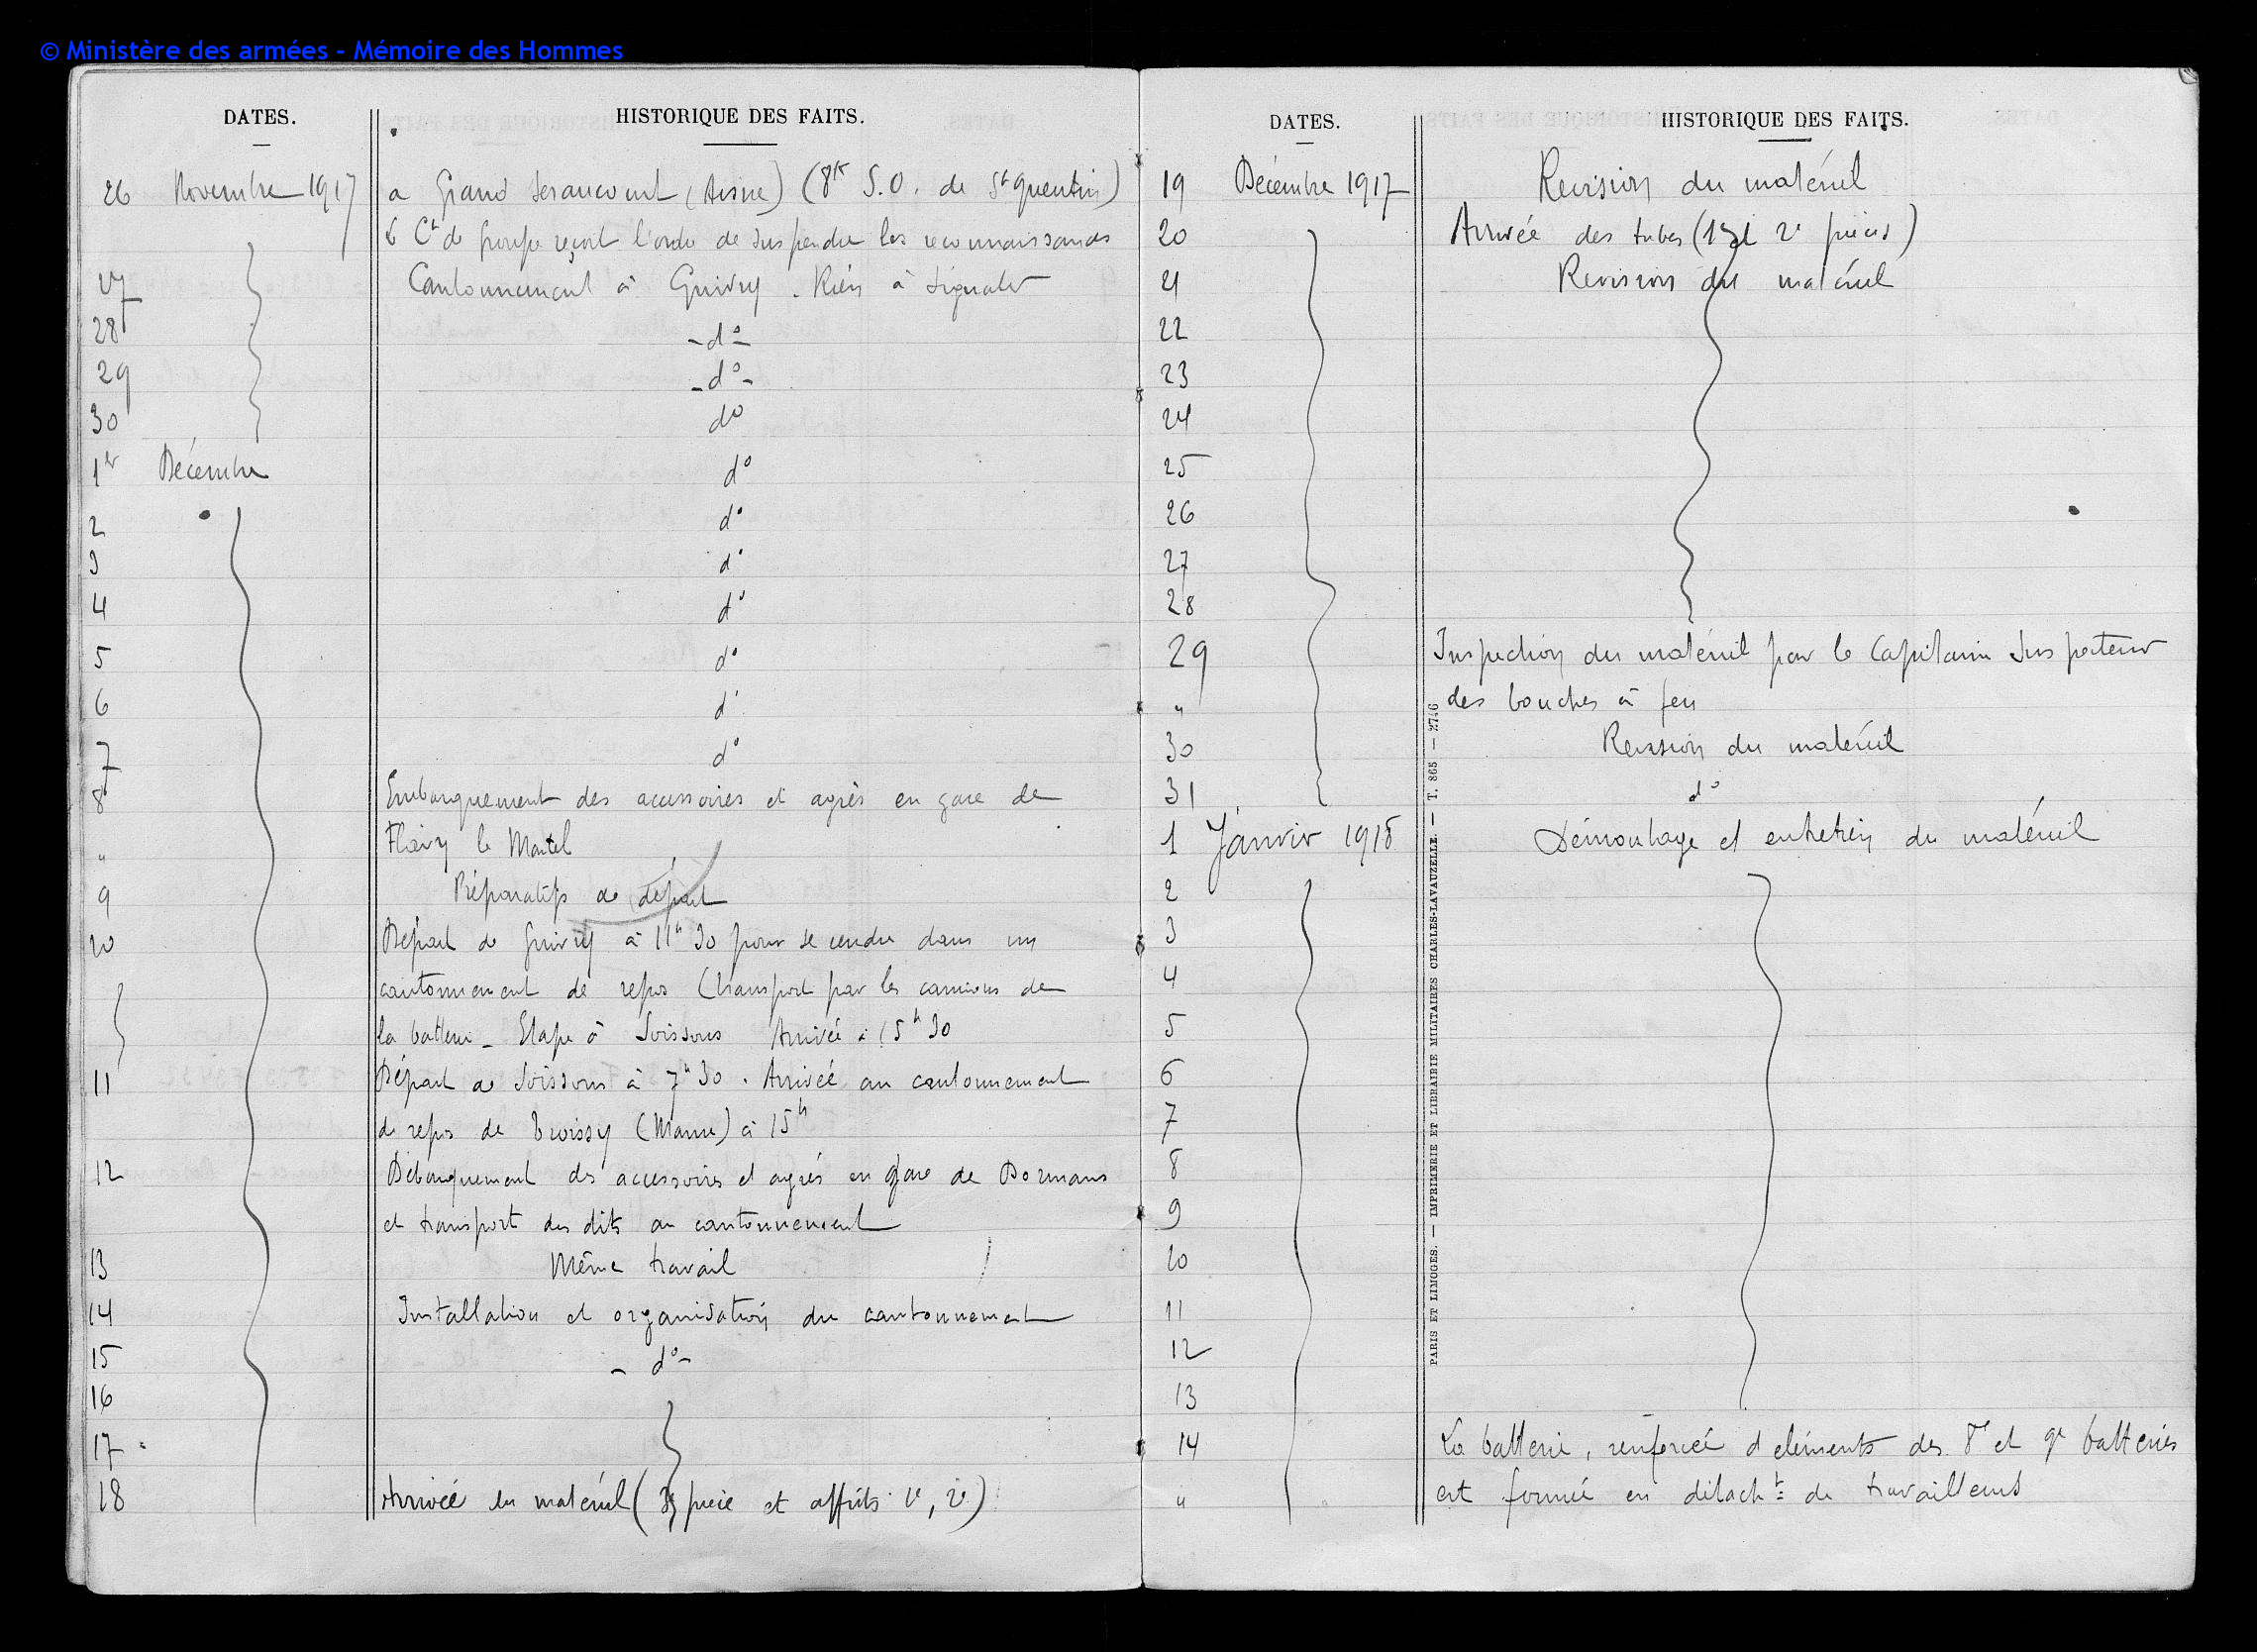 © Ministère des armées - Mémoire des Hommes
DATES. HISTORIQUE DES FAITS.
26 Novembre 1917 a Grand Seraucourt (Aisne) (8K S.O. de St Quentin)
Le Ct de groupe reçoit l'ordre de suspendre les reconnaissances
27 Cantonnement à Guivry. Rien à signaler
28 - do -
29 - do -
30 do
1er Décembre do
2 do
3 do
4 do
5 do
6 do
7 do
8 Embarquement des accessoires et agrès en gare de
" Flavy le Martel
9 Préparatifs de départ
10 Départ de Guivry à 11h30 pour se rendre dans un
cantonnement de repos (transport par les camions de
la batterie - Etape à Soissons Arrivée à 15h30
11 Départ de Soissons à 7h30. Arrivée au cantonnement
de repos de Troissy (Marne) à 15h
12 Débarquement des accessoires et agrés en gare de Dormans
et transport des dits au cantonnement
13 Même travail
14 Installation et organisation du cantonnement
15 - do -
16
17
18 Arrivée du matériel ( pièce et affûts 1e, 2e)
DATES. HISTORIQUE DES FAITS.
19 Décembre 1917 Revision du matériel
20 Arrivée des tubes (1e et 2e pièces)
21 Revision du matériel
22
23
24
25
26
27
28
29 Inspection du matériel par le Capitaine Inspecteur
" des bouches à feu
30 Revision du matériel
31 do
1 Janvier 1918 Démontage et entretien du matériel
2
3
4
5
6
7
8
9
10
11
12
13
14 La batterie, renforcée d'eléments des 8e et 9e batteries
" est formée en détacht de travailleurs
PARIS ET LIMOGES. — IMPRIMERIE ET LIBRAIRIE MILITAIRES CHARLES-LAVAUZELLE. — T. 865 — 2746